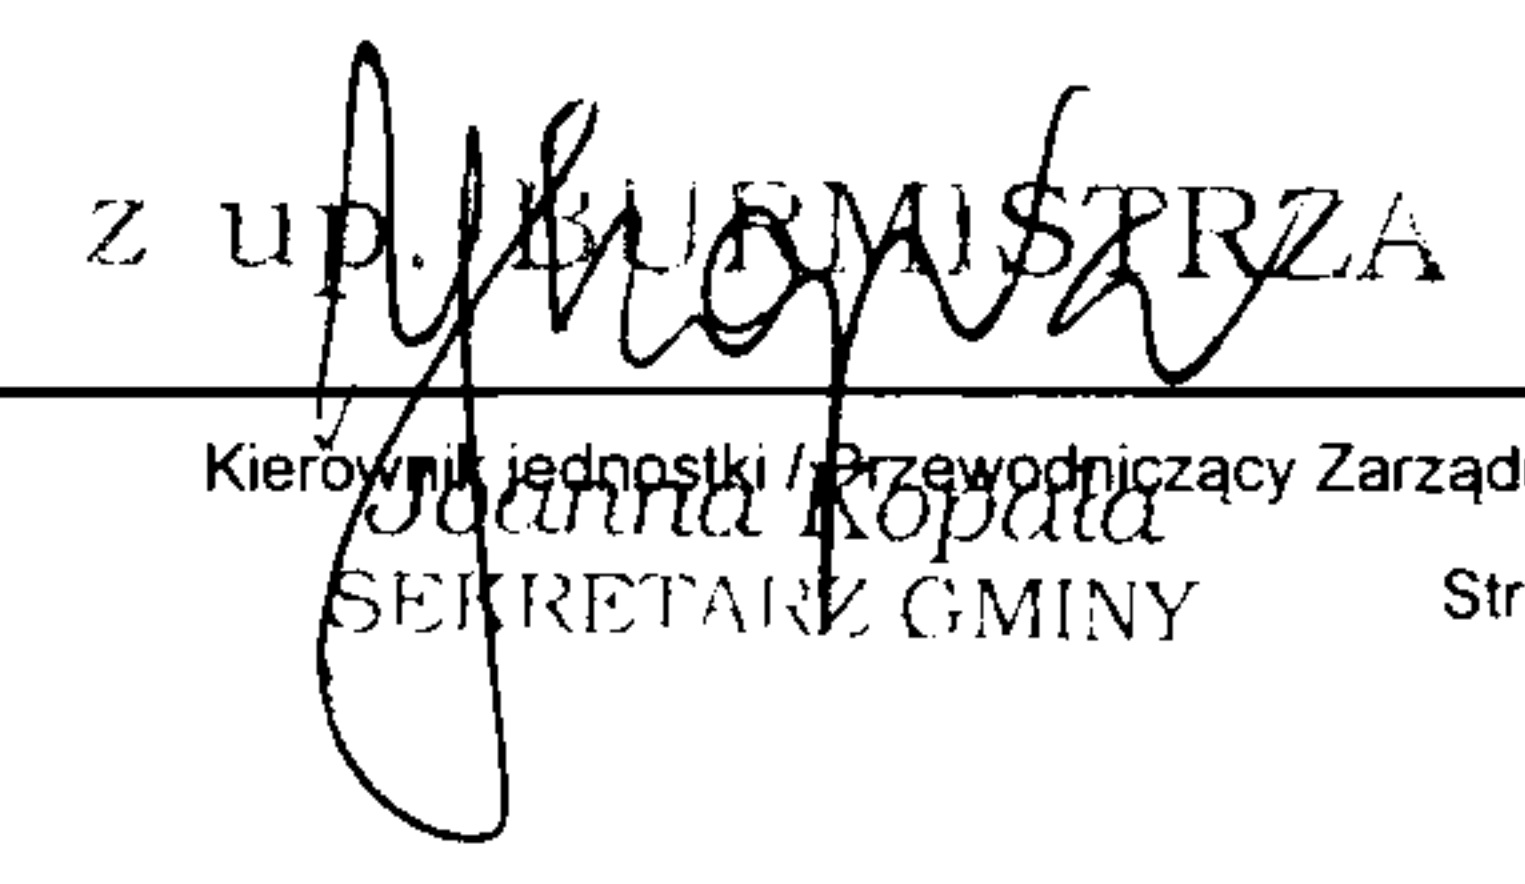 z up. BURMISTRZA
Kierownik jednostki / Przewodniczący Zarządu
Joanna Kopała
SEKRETARZ GMINY
Str